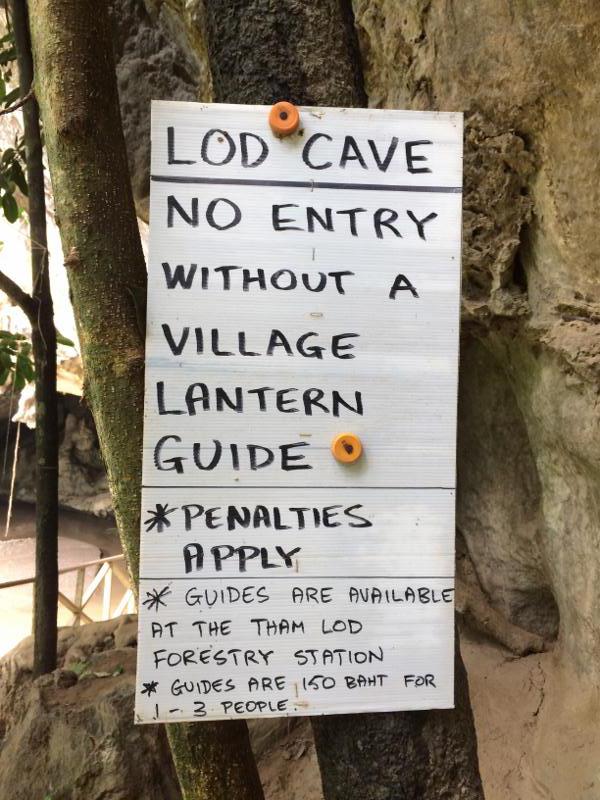 LOD CAVE
NO ENTRY
WITHOUT A
VILLAGE
LANTERN
GUIDE
* PENALTIES
APPLY
* GUIDES ARE AVAILABLE
AT THE THAM LOD
FORESTRY STATION
* GUIDES ARE 150 BAHT FOR
1 - 3 PEOPLE.